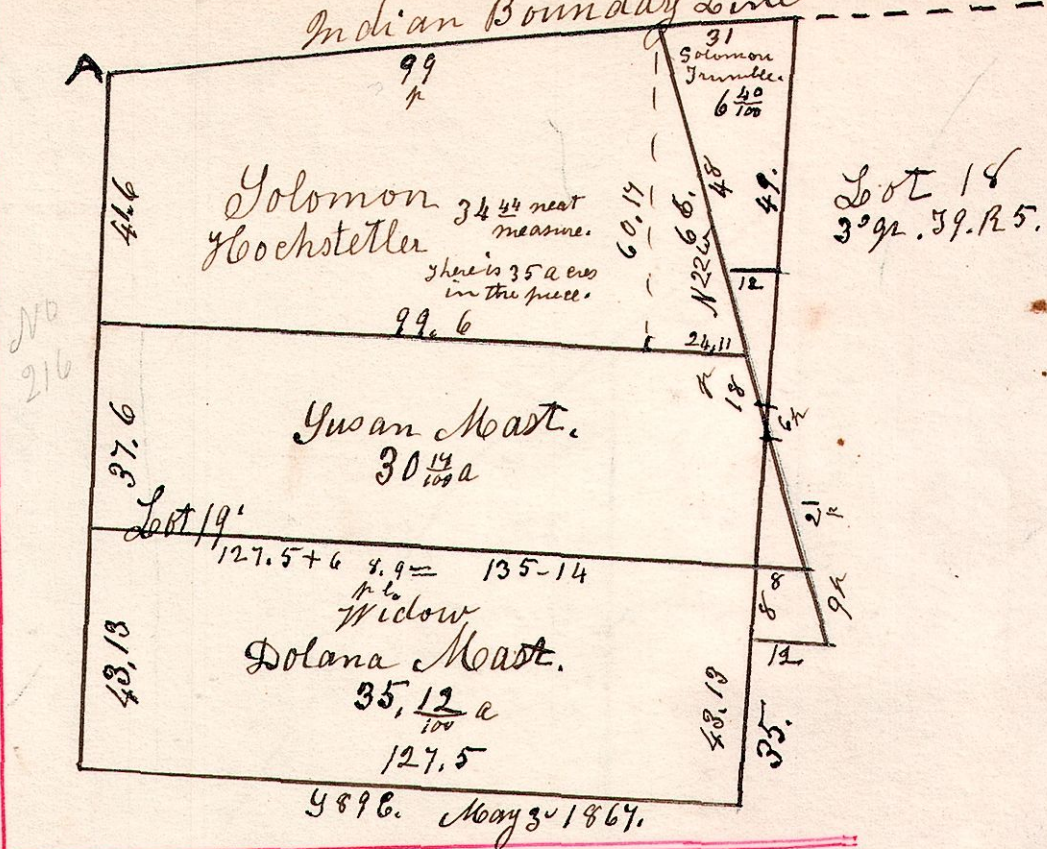 Indian Boundary Line
A
99
p
31
Solomon
Trumble.
6 40/100
41.6
Solomon
Hochstetler
34 44/100 neat
measure.
There is 35 acres
in the piece.
60.17
N 22 W 66.
48
49.
12
Lot 18
3d qr. T9. R5.
99.6
24,11
No
216
37.6
Susan Mast.
30 14/100 a
p
18
6p
21
p
Lot 19
127.5+6 8.9= 135-14
Widow
Dolana Mast.
35, 12/100 a
127.5
43,13
43.13
8
8
9p
12
35.
S 89 E. May 3d 1867.